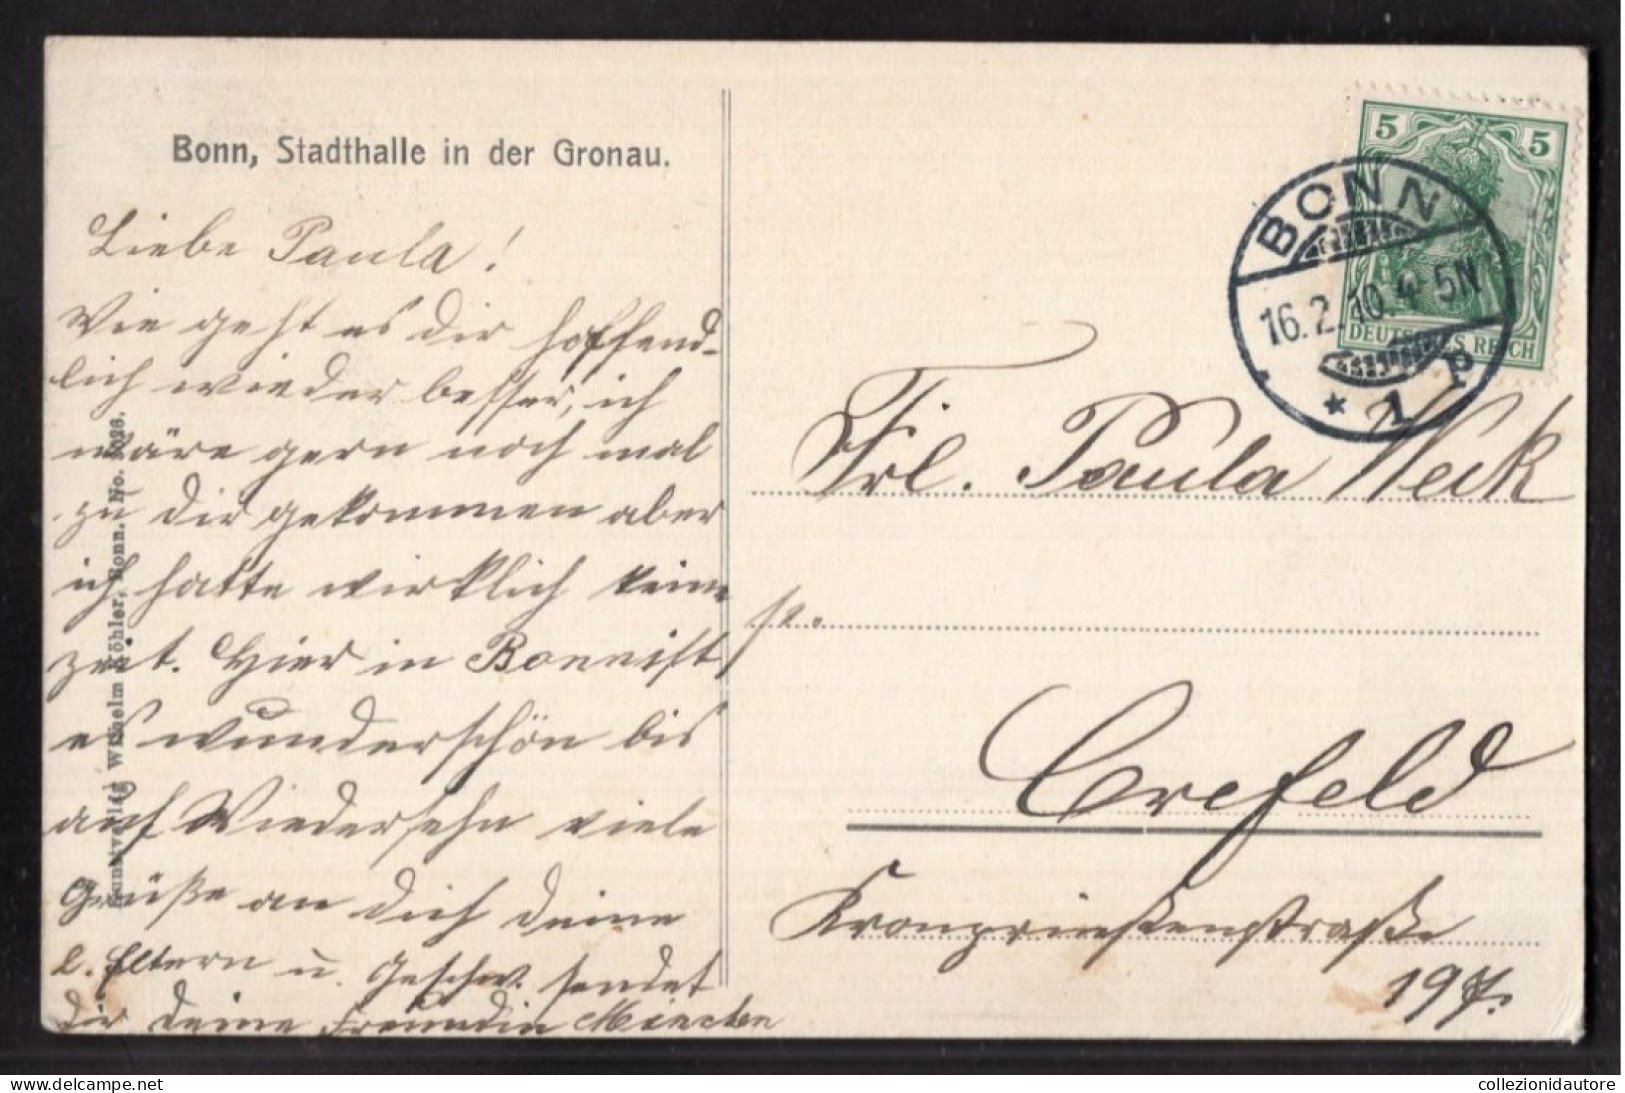 Bonn, Stadthalle in der Gronau.
Liebe Paula!
Wie geht es dir hoffend-
lich wieder besser, ich
wäre gern noch mal
zu dir gekommen aber
ich hatte wirklich keine
zeit. Hier in Bonn ist
es wunderschön bis
auf Wiedersehn viele
Grüße an dich deine
l. Eltern u. Geschw. sendet
dir deine Freundin
Kunstverlag Wilhelm Köhler, Bonn. No.
5 5
DEUTSCHES REICH
BONN
16.2.10. 4-5N
* 1 P
Frl. Paula
Crefeld
Kronprinzenstraße
197.
collezionidautore